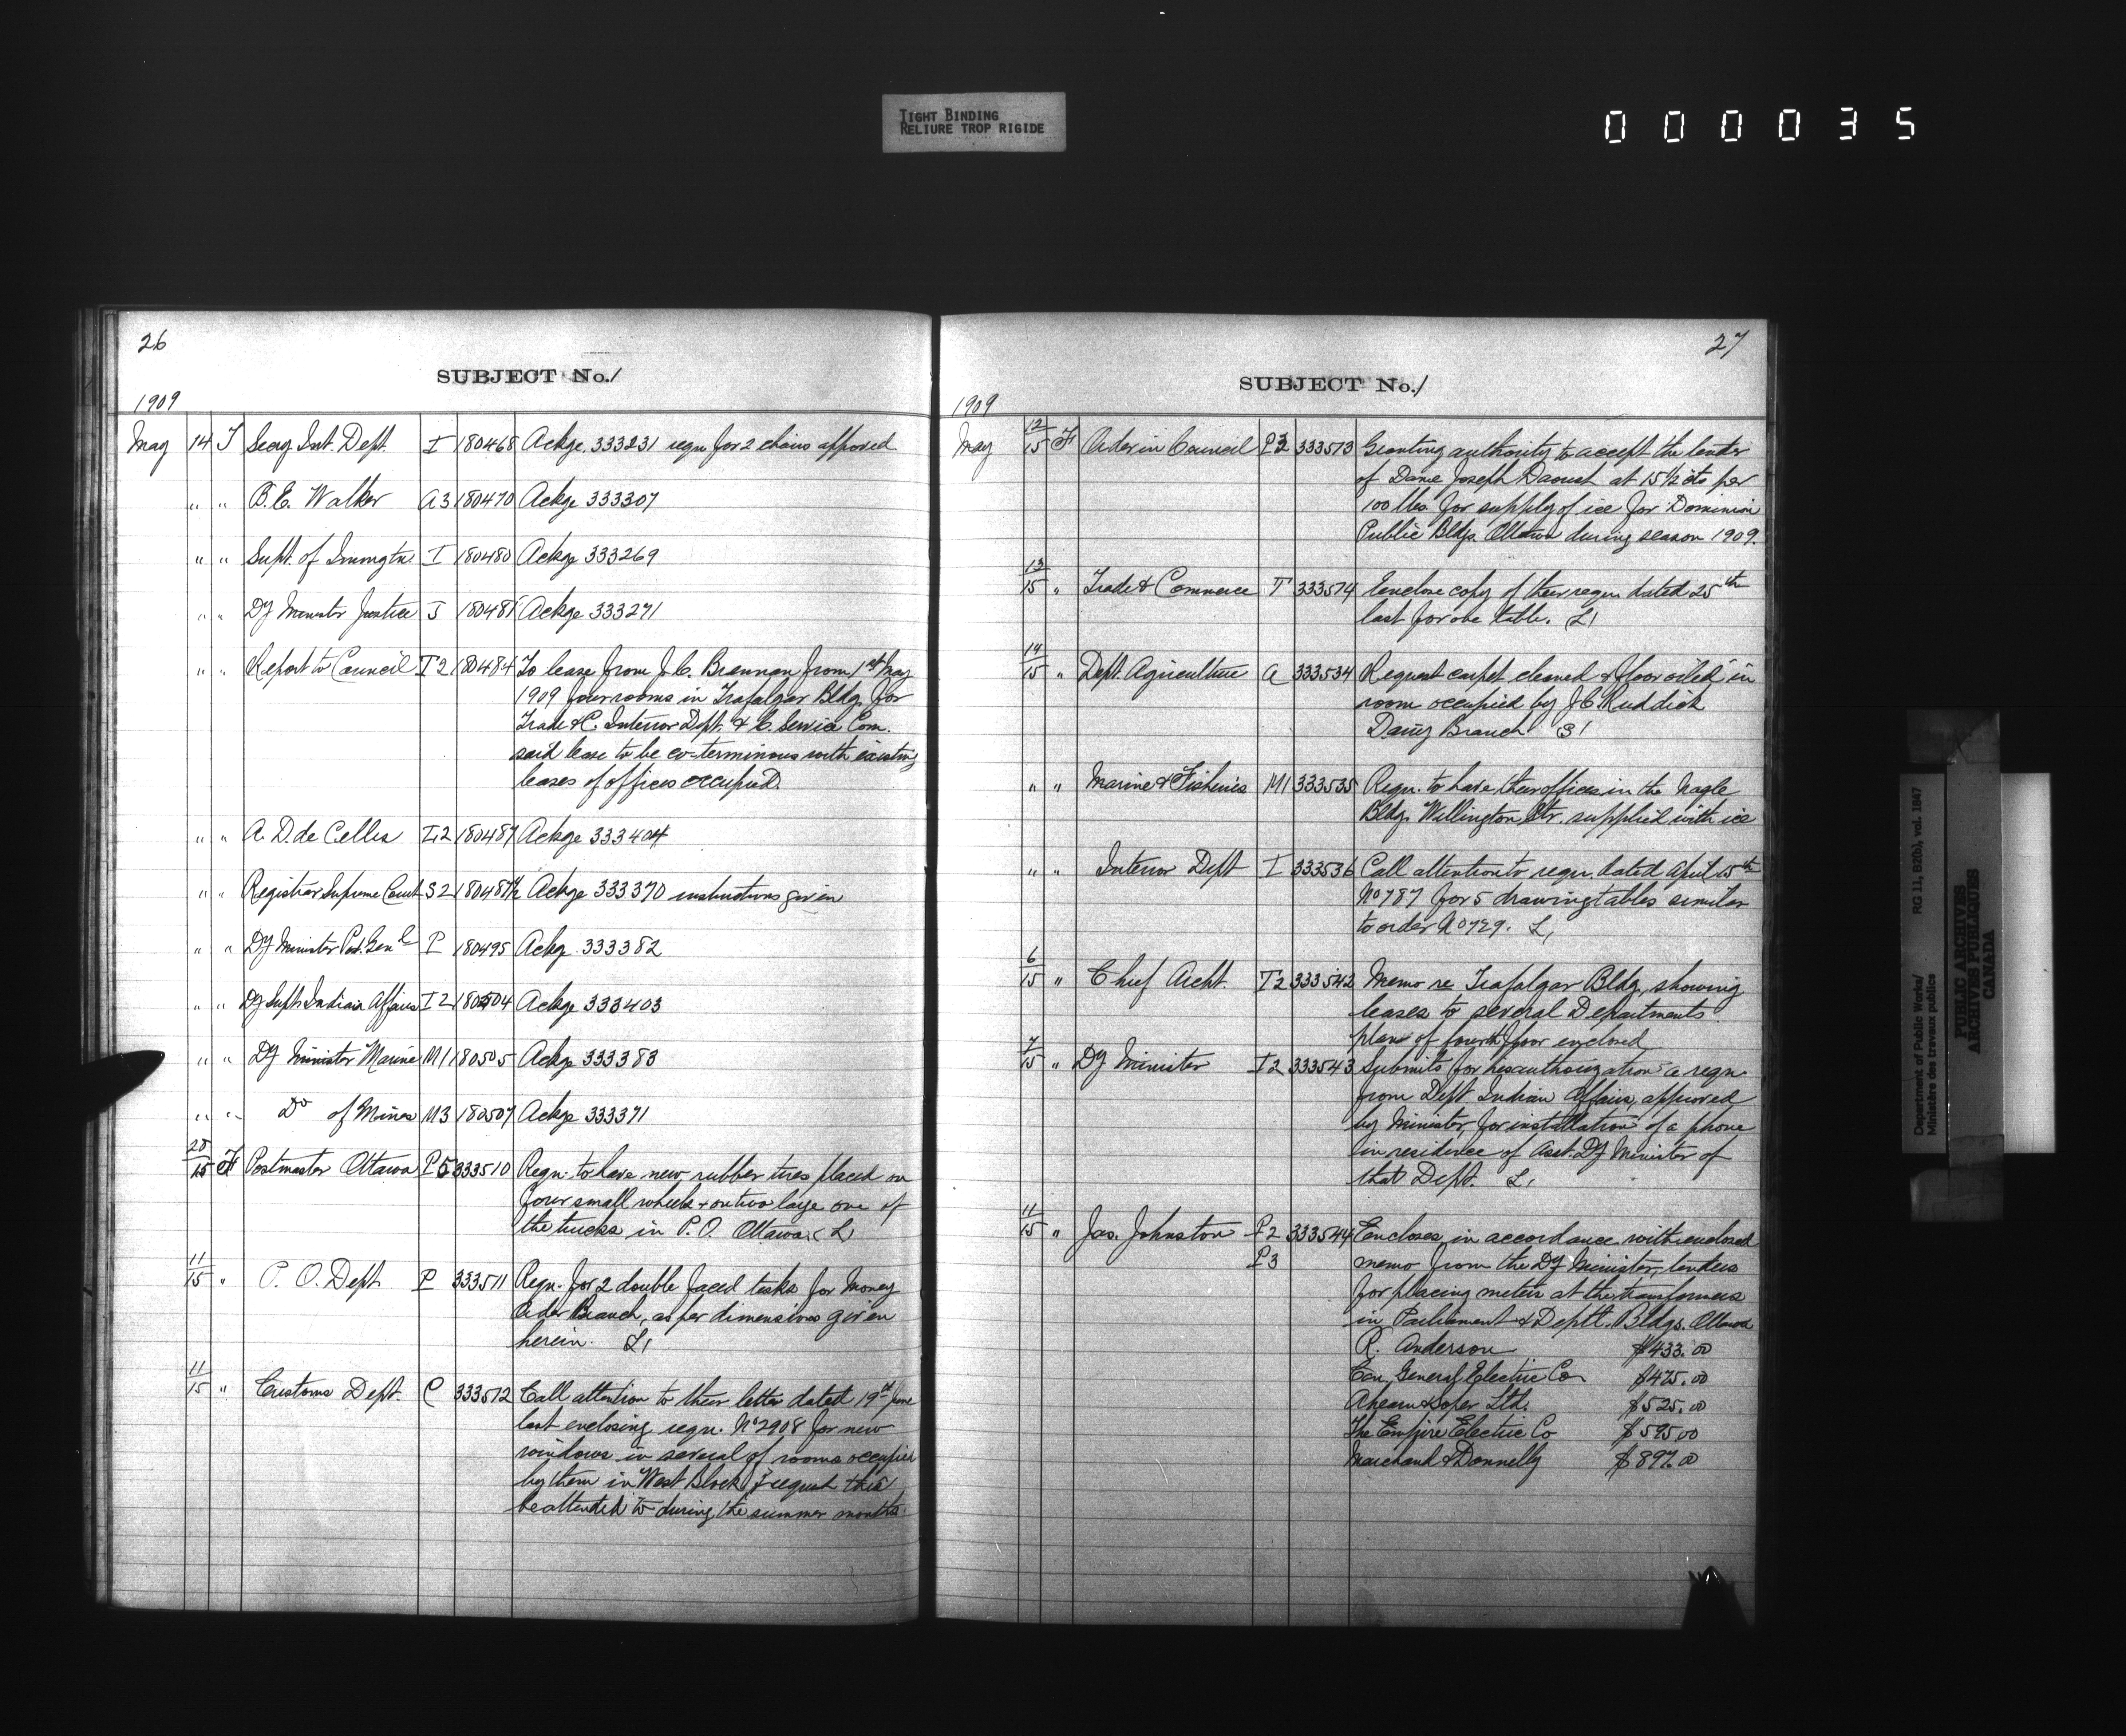 TIGHT BINDING
RELIURE TROP RIGIDE
000035
26
SUBJECT No. 1
1909
May 14 T Secy Int. Dept. I 180468 Ackge. 333231 reqn for 2 chairs approved
" " B. E. Walker A3 180470 Ackge 333307
" " Supt. of Immigtn. I 180480 Ackge 333269
" " Dy Minister Justice J 180481 Ackge 333271
" " Report to Council T2 180484 To lease from J. C. Brennan from 1st May
1909 four rooms in Trafalgar Bldg. for
Trade & C. Interior Dept. & C. Service Com.
said lease to be co-terminous with existing
leases of offices occupied.
" " A. D. de Celles L2 180487 Ackge 333404
" " Registrar Supreme Court S2 180487½ Ackge 333370 instructions given
" " Dy Minister Post. Genl P 180495 Ackg 333382
" " Dy Supt. Indian Affairs I2 180504 Ackge 333403
" " Dy Minister Marine M1 180505 Ackge 333383
" " Do of Mines M3 180507 Ackge 333371
28/15 F Postmaster Ottawa P5 333510 Reqn. to have new rubber tires placed on
four small wheels + on two large one of
the trucks in P. O. Ottawa. L
11/15 " P. O. Dept P 333511 Reqn. for 2 double faced desks for Money
Order Branch, as per dimensions given
herein. L1
11/15 " Customs Dept. C 333512 Call attention to their letter dated 19th June
last enclosing reqn. No 2908 for new
windows in several of rooms occupied
by them in West Block & request this
be attended to during the summer months
27
SUBJECT No. 1
1909
May 12/15 F Order in Council P2 333513 Granting authority to accept the tender
of Dame Joseph Daoust at 15½ cts per
100 lbs. for supply of ice for Dominion
Public Bldgs. Ottawa during season 1909.
13/15 " Trade & Commerce T 333514 Enclose copy of their reqn. dated 25th
last for one table. L1
14/15 " Dept. Agriculture A 333534 Request carpet cleaned & floor oiled in
room occupied by J C Ruddick
Dairy Branch S1
" " Marine & Fisheries M1 333535 Reqn. to have their offices in the Nagle
Bldg. Wellington Str. supplied with ice
" " Interior Dept I 333536 Call attention to reqn. dated April 15th
No 787 for 5 drawing tables similar
to order No 729. L1
6/15 " Chief Archt. T2 333542 Memo re Trafalgar Bldg., showing
leases to several Departments
plans of fourth floor enclosed
7/15 " Dy Minister I2 333543 Submits for his authorization a reqn.
from Dept. Indian Affairs, approved
by Minister for installation of a phone
in residence of Asst. Dy Minister of
that Dept. L1
11/15 " Jas. Johnston P2 333544 Encloses in accordance with enclosed
P3 memo from the Dy Minister, tenders
for placing meters at the transformers
in Parliament & Deptl. Bldgs. Ottawa
R. Anderson $433.00
Can. General Electric Co $475.00
Ahearn & Soper Ltd. $525.00
The Empire Electric Co $595.00
Marchand & Donnelly $897.00
Department of Public Works/
Ministère des travaux publics
RG 11, B2(b), vol. 1847
PUBLIC ARCHIVES
ARCHIVES PUBLIQUES
CANADA